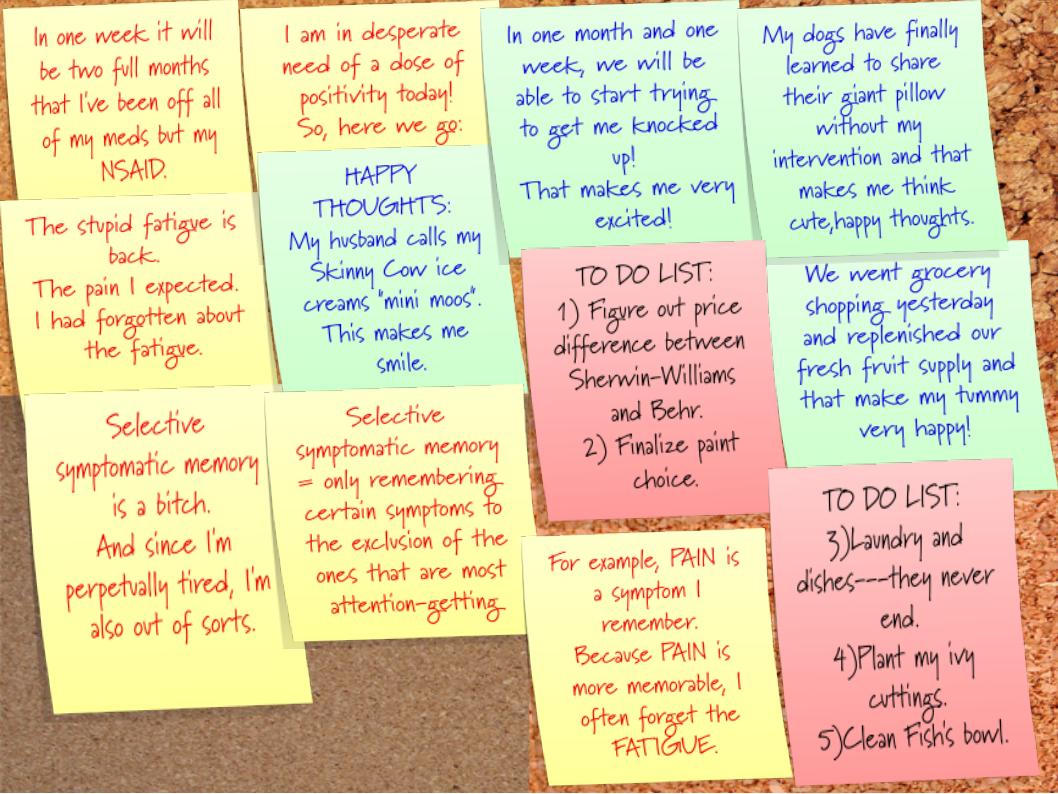 In one week it will
be two full months
that I've been off all
of my meds but my
NSAID.
I am in desperate
need of a dose of
positivity today!
So, here we go:
In one month and one
week, we will be
able to start trying
to get me knocked
up!
That makes me very
excited!
My dogs have finally
learned to share
their giant pillow
without my
intervention and that
makes me think
cute,happy thoughts.
The stupid fatigue is
back.
The pain I expected.
I had forgotten about
the fatigue.
HAPPY
THOUGHTS:
My husband calls my
Skinny Cow ice
creams "mini moos".
This makes me
smile.
TO DO LIST:
1) Figure out price
difference between
Sherwin-Williams
and Behr.
2) Finalize paint
choice.
We went grocery
shopping yesterday
and replenished our
fresh fruit supply and
that make my tummy
very happy!
Selective
symptomatic memory
is a bitch.
And since I'm
perpetually tired, I'm
also out of sorts.
Selective
symptomatic memory
= only remembering
certain symptoms to
the exclusion of the
ones that are most
attention-getting
For example, PAIN is
a symptom I
remember.
Because PAIN is
more memorable, I
often forget the
FATIGUE.
TO DO LIST:
3)Laundry and
dishes---they never
end.
4)Plant my ivy
cuttings.
5)Clean Fish's bowl.